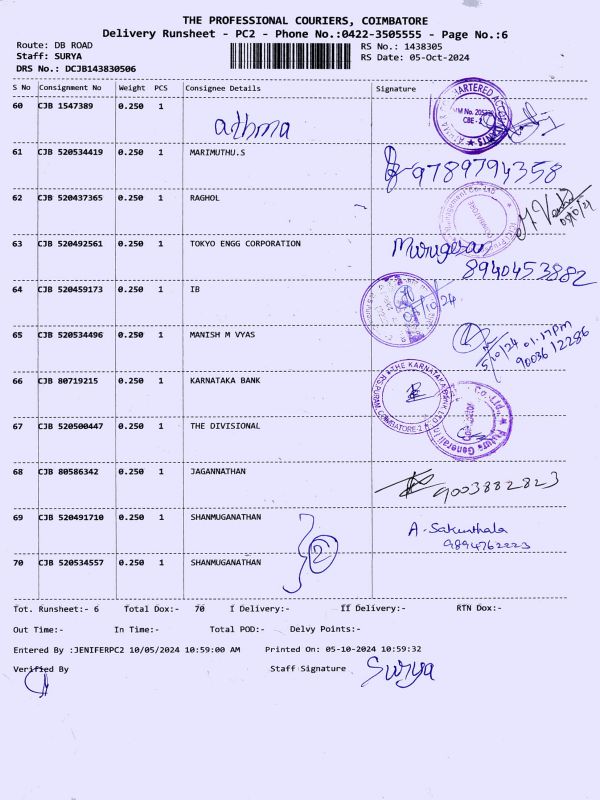 THE PROFESSIONAL COURIERS, COIMBATORE
Delivery Runsheet - PC2 - Phone No.:0422-3505555 - Page No.:6
Route: DB ROAD
Staff: SURYA
DRS No.: DCJB143830506
RS No.: 1438305
RS Date: 05-Oct-2024
S No Consignment No Weight PCS Consignee Details Signature
60 CJB 1547389 0.250 1
CHARTERED ACCOUNTANTS
CBE - 2
61 CJB 520534419 0.250 1 MARIMUTHU.S 9789794358
62 CJB 520437365 0.250 1 RAGHOL
63 CJB 520492561 0.250 1 TOKYO ENGG CORPORATION Murugesan
8940453882
64 CJB 520459173 0.250 1 IB
65 CJB 520534496 0.250 1 MANISH M VYAS 5/10/24 01:17pm
9003612286
66 CJB 80719215 0.250 1 KARNATAKA BANK
THE KARNATAKA BANK LTD
R S PURAM, COIMBATORE-2
67 CJB 520500447 0.250 1 THE DIVISIONAL
Future Generali
68 CJB 80586342 0.250 1 JAGANNATHAN 9003882823
69 CJB 520491710 0.250 1 SHANMUGANATHAN A. Sakunthala
9894762223
2
70 CJB 520534557 0.250 1 SHANMUGANATHAN
Tot. Runsheet:- 6 Total Dox:- 70 I Delivery:- II Delivery:- RTN Dox:-
Out Time:- In Time:- Total POD:- Delvy Points:-
Entered By :JENIFERPC2 10/05/2024 10:59:00 AM Printed On: 05-10-2024 10:59:32
Verified By Staff Signature Surya